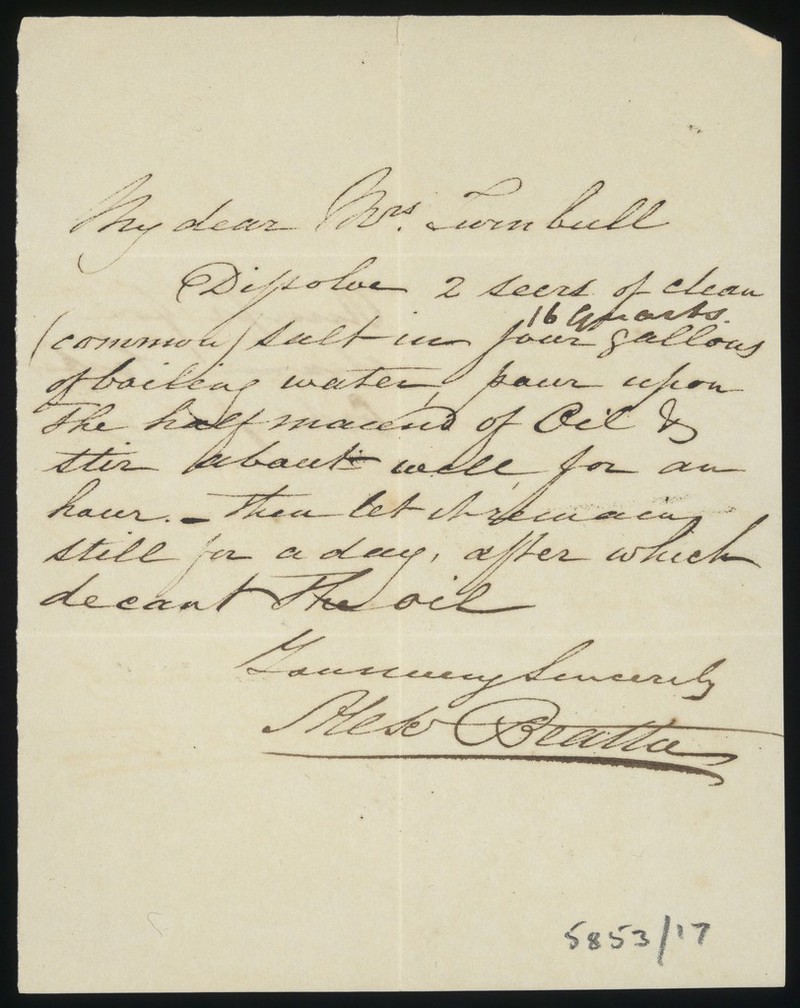 My dear Mrs. Turnbull
Dissolve 2 seers of clean
16 Quarts.
(common) salt in four gallons
of boiling water, pour upon
The half maund of Oil &
stir about well, for an
hour. - Then let it remain
still for a day, after which
decant The oil
Yours very Sincerely
Alexr Beattie
5853/17